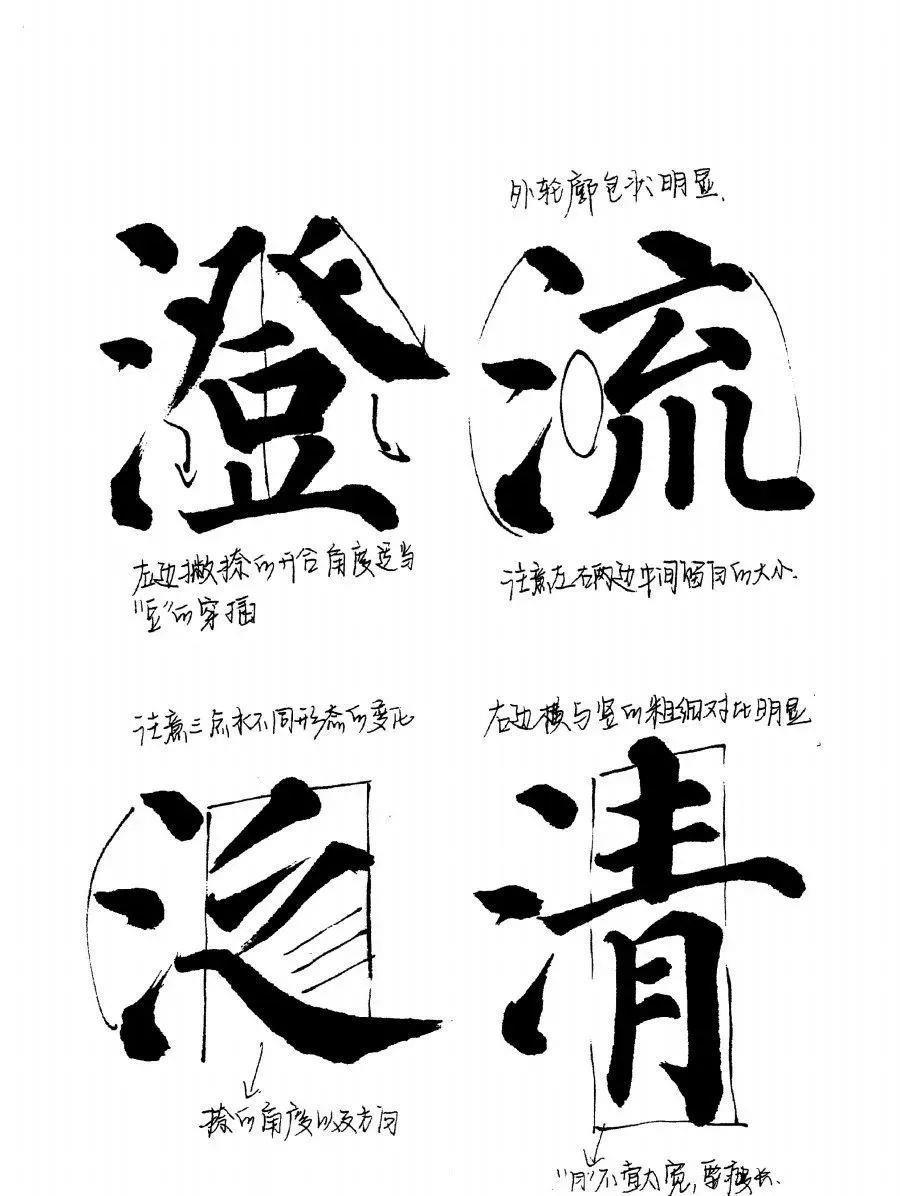 外轮廓包状明显.
澄 流
左边撇捺的开合角度适当
"豆"的穿插
注意左右两边中间留白的大小.
注意三点水不同形态的变化
右边横与竖的粗细对比明显
泛 清
捺的角度以及方向
"月"不宜太宽,要瘦长.